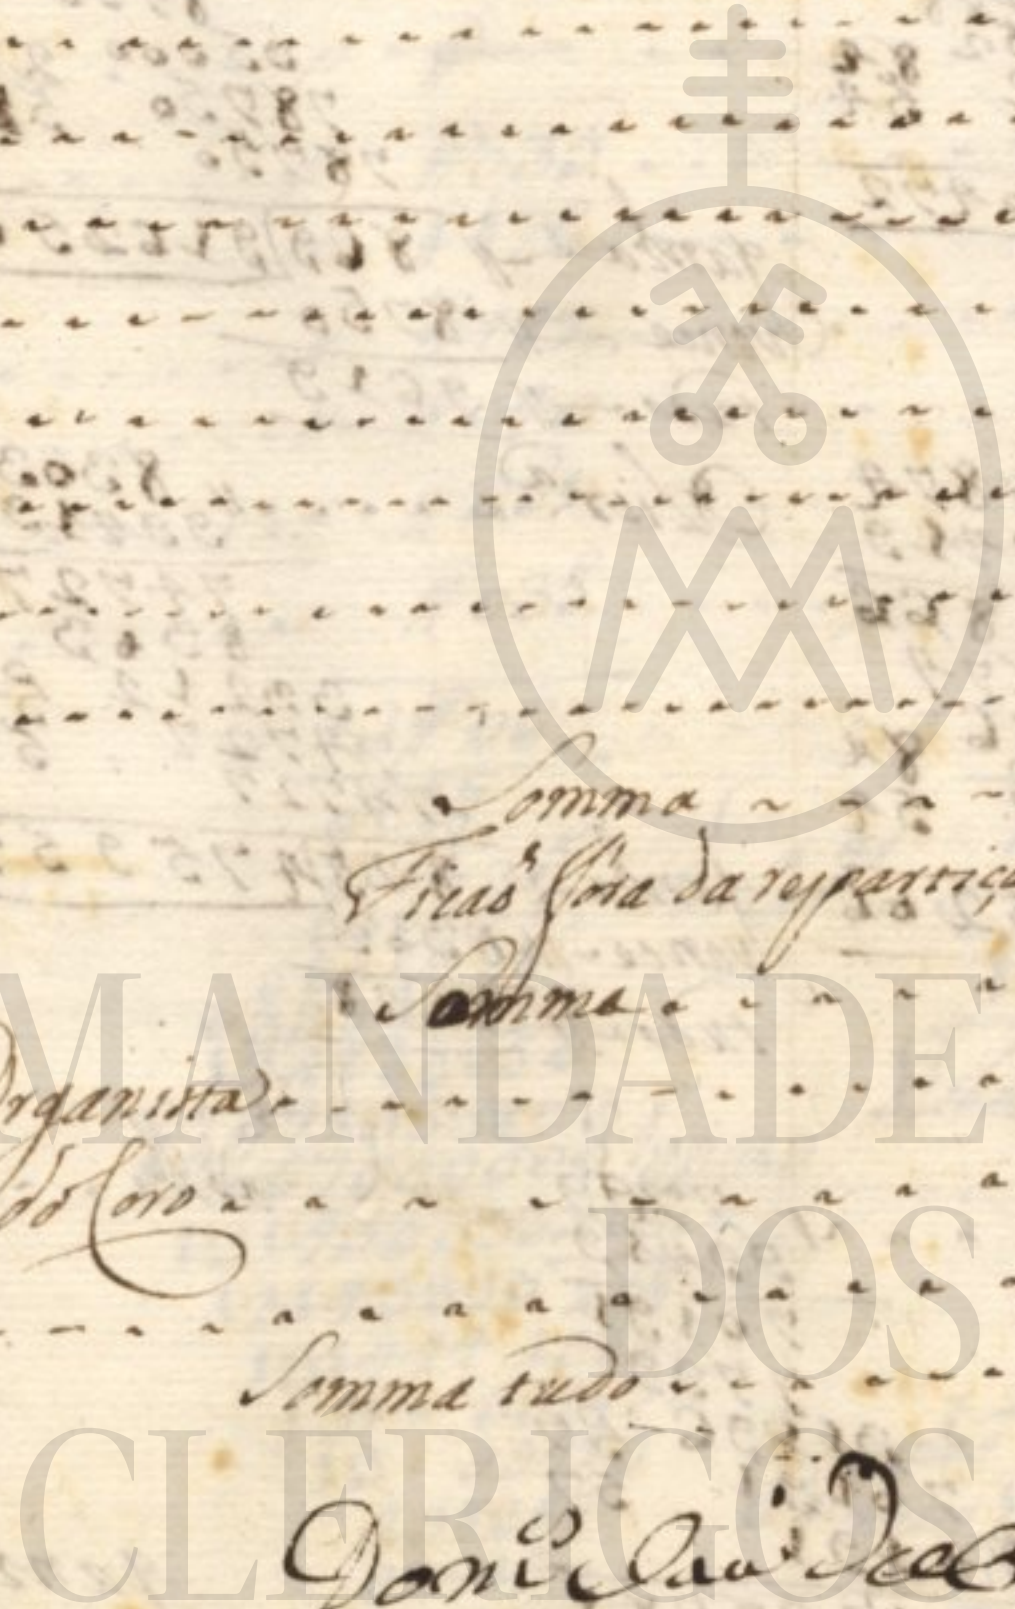 Somma
Ficaõ fora da repartiçã
Somma
Organista
do Coro
Somma tudo
MANDADE
DOS
CLERIGOS